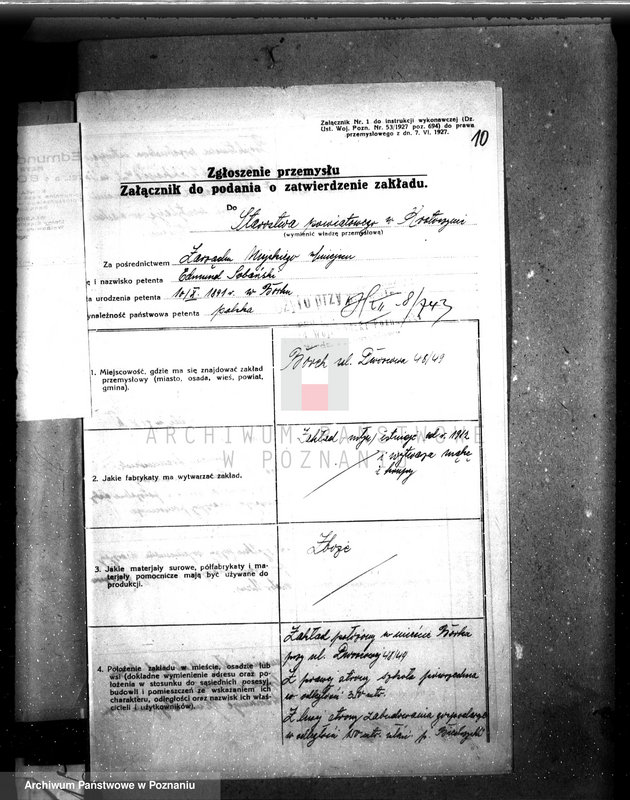 Załącznik Nr. 1 do instrukcji wykonawczej (Dz.
Ust. Woj. Pozn. Nr. 53/1927 poz. 694) do prawa
przemysłowego z dn. 7. VI. 1927.
10
Zgłoszenie przemysłu
Załącznik do podania o zatwierdzenie zakładu.
Do
Starostwa powiatowego w
(wymienić władzę przemysłową)
Za pośrednictwem Zarządu Miejskiego
ę i nazwisko petenta Edmund Sobański
ta urodzenia petenta 10/X. 1891 r. w Borku
ynależność państwowa petenta polska
1. Miejscowość, gdzie ma się znajdować zakład
przemysłowy (miasto, osada, wieś, powiat,
gmina).
Borek ul. Dworcowa 48/49
ARCHIWUM PAŃSTWOWE
W POZNANIU
2. Jakie fabrykaty ma wytwarzać zakład.
Zakład istnieje od r. 1912
i wytwarza mąkę
i
3. Jakie materjały surowe, półfabrykaty i ma-
terjały pomocnicze mają być używane do
produkcji.
Zboże
4. Położenie zakładu w mieście, osadzie lub
wsi (dokładne wymienienie adresu oraz po-
łożenia w stosunku do sąsiednich posesyj,
budowli i pomieszczeń ze wskazaniem ich
charakteru, odległości oraz nazwisk ich właś-
cicieli i użytkowników).
Zakład położony w mieście Borku
przy ul. Dworcowej 48/49
Z prawej strony szkoła powszechna
w odległości 300 mtr.
Z lewej strony zabudowania gospodarcze
w odległości mtr. p.
Archiwum Państwowe w Poznaniu